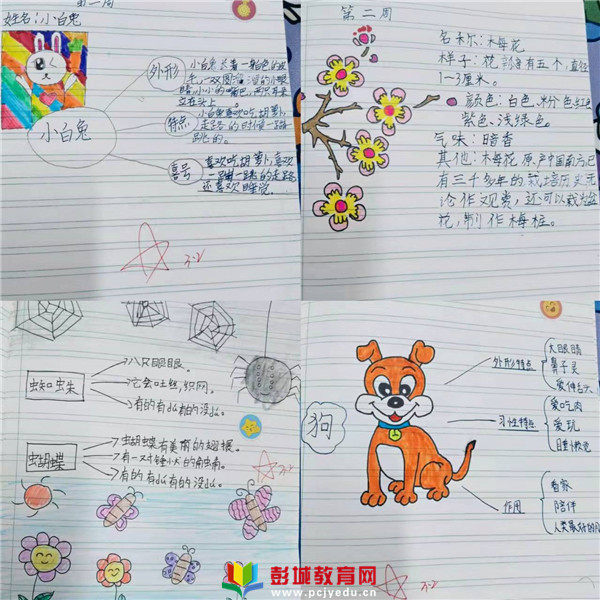 第一周
姓名:小白兔
小白兔
外形
小白兔长着一身白色的皮
毛,一双圆溜溜的小眼
睛,小小的嘴巴,两只耳朵
立在头上
特点
小白兔喜欢吃胡萝卜,
走路的时候一蹦
跳的。
喜号
喜欢吃胡萝卜,喜欢
一蹦一跳的走路
还喜欢睡觉
第二周
名称:梅花
样子:花瓣有五个,直径
1~3厘米。
颜色:白色、粉色、红色
紫色、浅绿色。
气味:暗香
其他:梅花原产中国南方,已
有三千多年的栽培历史,无
论作观赏,还可以栽为盆
花,制作梅桩。
蜘蛛
八只眼睛。
它会吐丝,织网。
有的有么有的没么。
蝴蝶
蝴蝶有美丽的翅膀。
有一对锤状的触角。
有的有么有的没么。
狗
外形特点
大眼睛
鼻子灵
爱伸舌头
习性特点
爱吃肉
爱玩
作用
看家
陪伴
人类最好的朋
彭城教育网
www.pcjyedu.cn